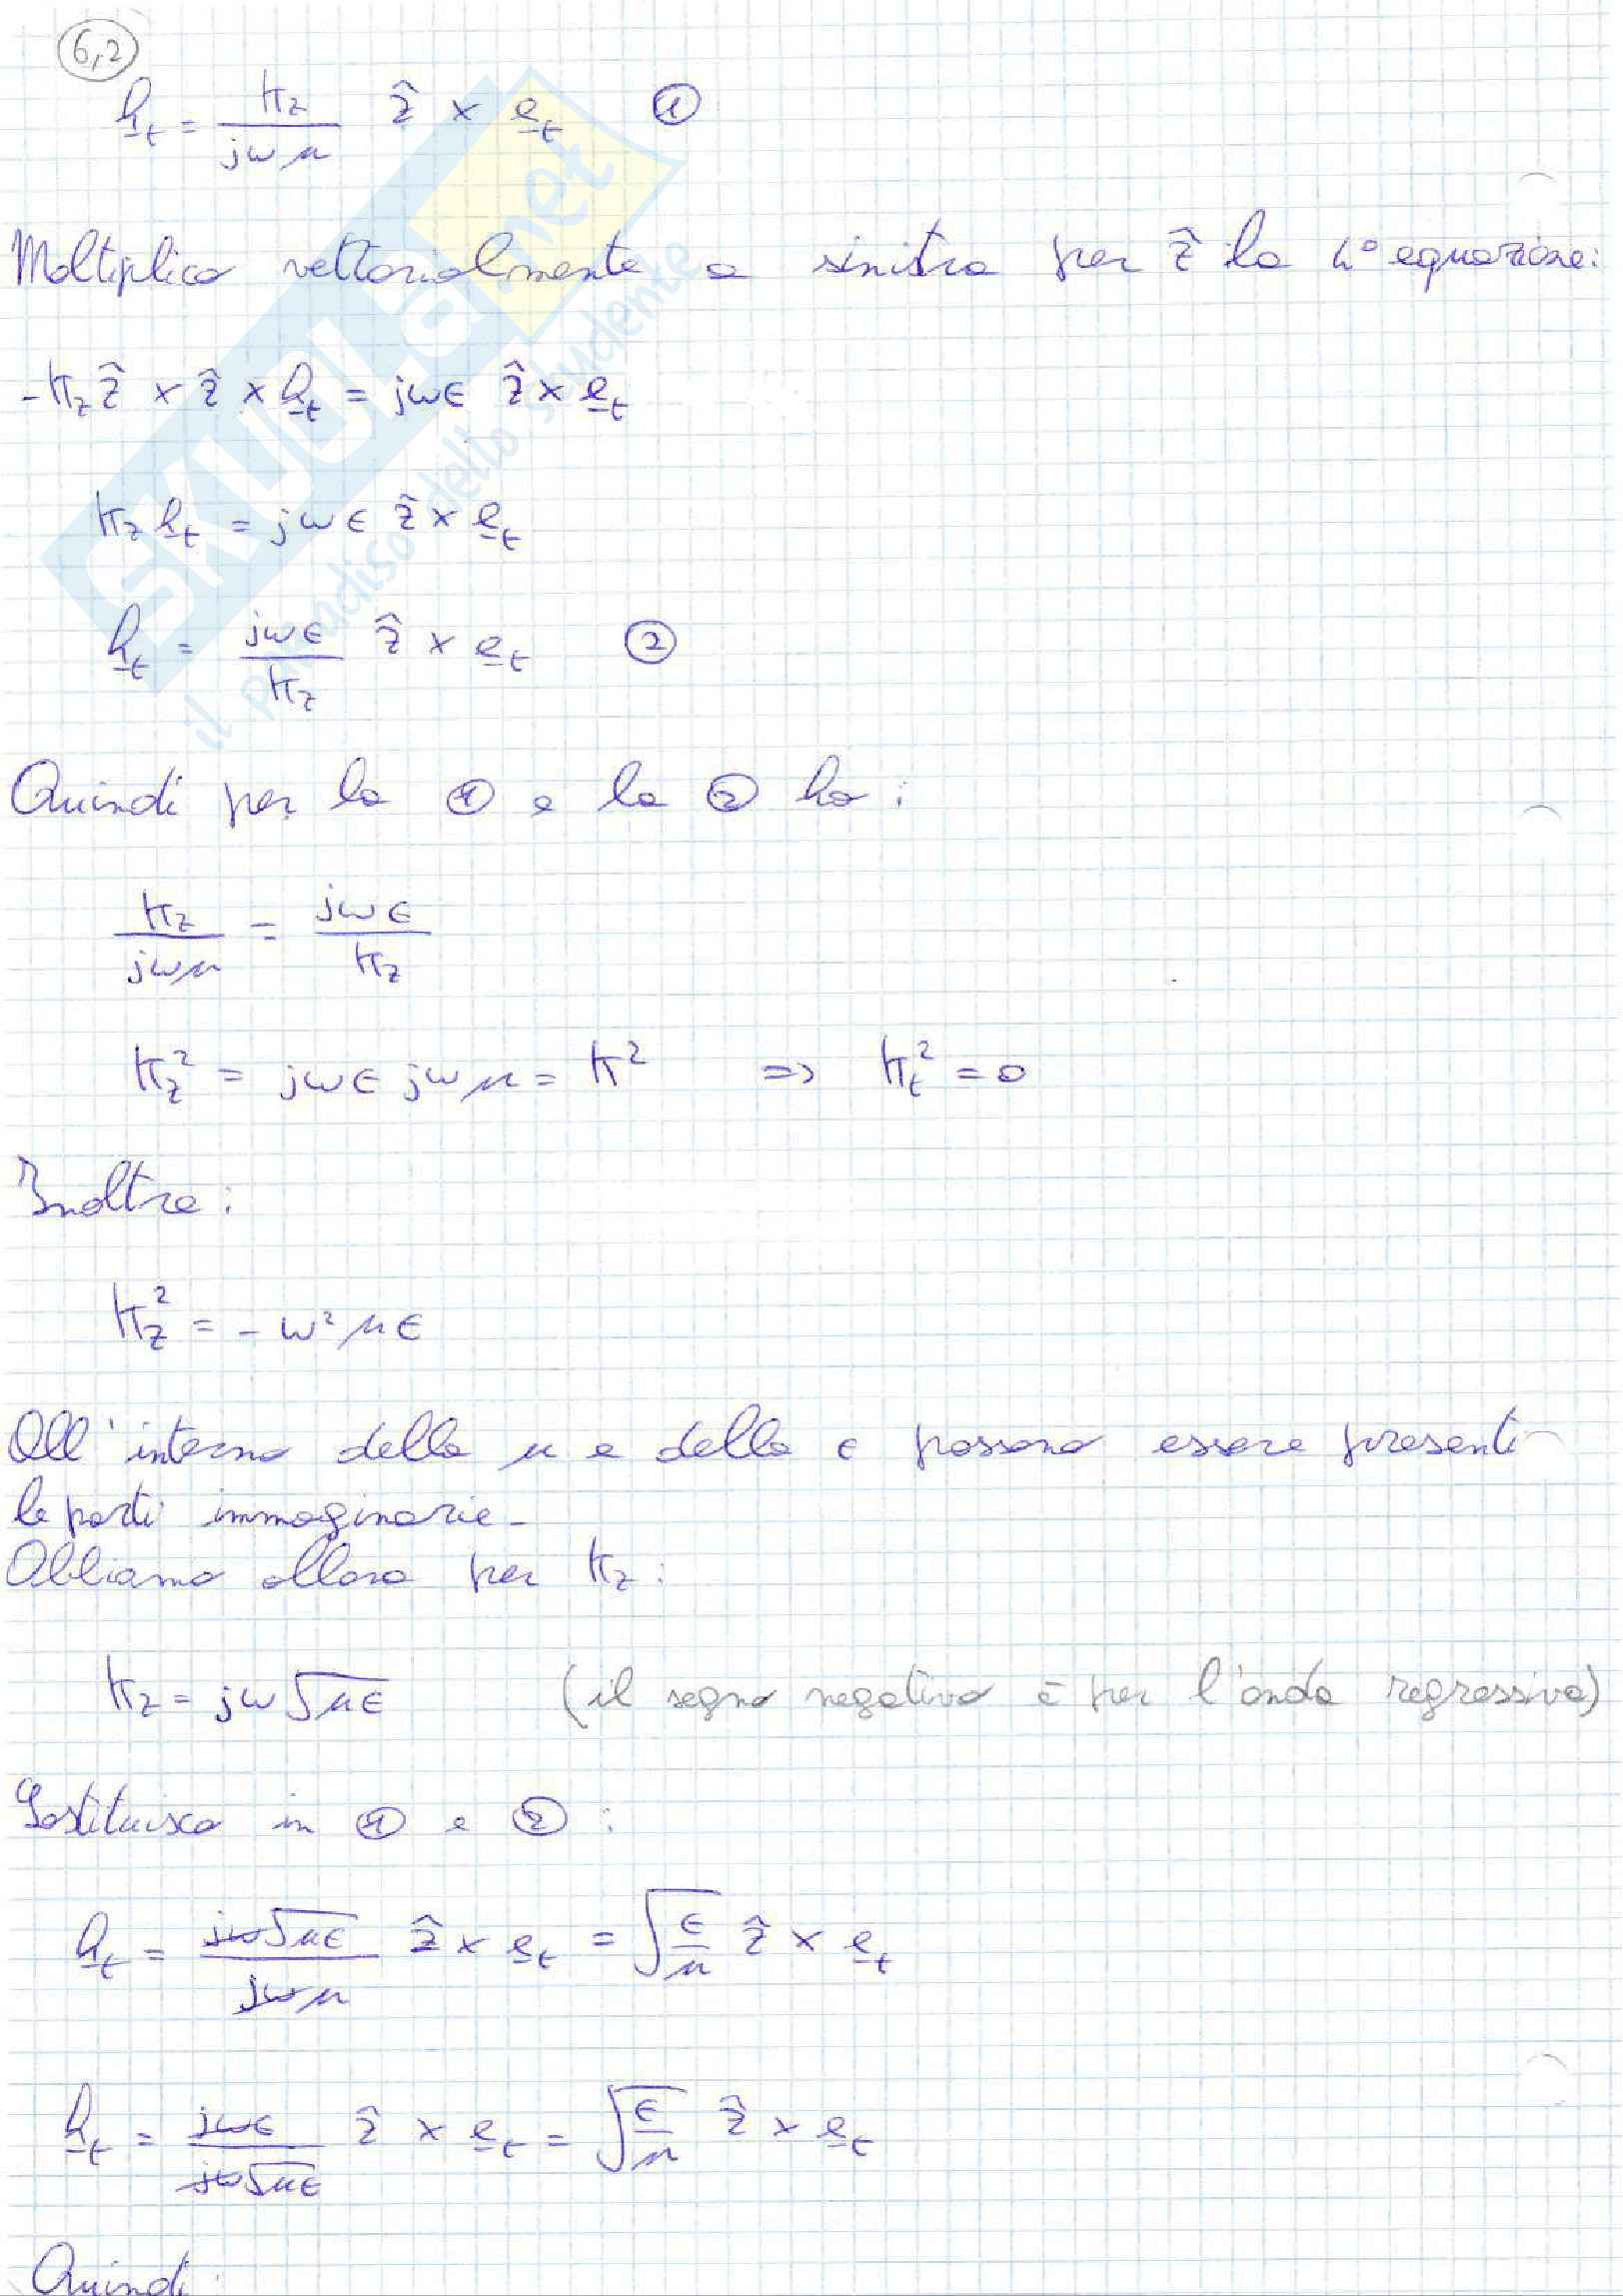 6,2
h_t = k_z / jωμ ẑ × e_t ①
Moltiplico vettorialmente a sinistra per ẑ la 4° equazione:
-k_z ẑ × ẑ × h_t = jωϵ ẑ × e_t
k_z h_t = jωϵ ẑ × e_t
h_t = jωϵ / k_z ẑ × e_t ②
Quindi per la ① e la ② ho:
k_z / jωμ = jωϵ / k_z
k_z² = jωϵ jωμ = k² => k_t² = 0
Inoltre:
k_z² = -ω²μϵ
All'interno della μ e della ϵ possono essere presenti
le parti immaginarie.
Abbiamo allora per k_z:
k_z = jω√μϵ (il segno negativo è per l'onda regressiva)
Sostituisco in ① e ②:
h_t = jω√μϵ / jωμ ẑ × e_t = √ϵ/μ ẑ × e_t
h_t = jωϵ / jω√μϵ ẑ × e_t = √ϵ/μ ẑ × e_t
Quindi:
SKUOLA.net
il paradiso dello studente